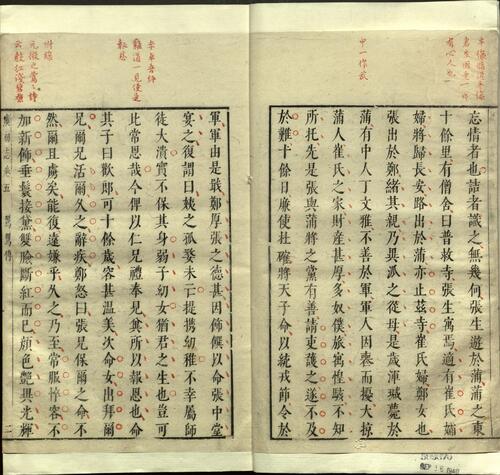 忘情者也詰者識之無幾何張生遊於蒲蒲之東
十餘里有僧舍曰普救寺張生寓焉適有崔氏孀
婦將歸長安路出於蒲亦止茲寺崔氏婦鄭女也
張出於鄭緒其親乃異派之從母是歲渾瑊薨於
蒲有中人丁文雅不善於軍軍人因喪而擾大掠
蒲人崔氏之家財產甚厚多奴僕旅寓惶駭不知
所托先是張與蒲將之黨有善請吏護之遂不及
於難十餘日廉使杜確將天子命以統戎節令於
中一作武
軍軍由是戢鄭厚張之德甚因飾饌以命張中堂
宴之復謂曰姨之孤嫠未亡提攜幼稚不幸屬師
徒大潰實不保其身弱子幼女猶君之生也豈可
比常恩哉今俾以仁兄禮奉見冀所以報恩也命
其子曰歡郎可十餘歲容甚溫美次命女出拜爾
兄爾兄活爾久之辭疾鄭怒曰張兄保爾之命不
然爾且虜矣能復遠嫌乎久之乃至常服悴容不
加新飾垂鬟接黛雙臉斷紅而已顏色艷異光輝
李卓吾評
難道一見便走
附錄
元微之鶯鶯詩
鶯鶯傳
二